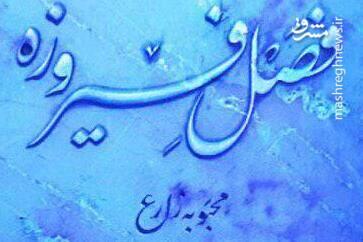 فصل فیروزه
محبوبه زارع
مشرق
mashreghnews.ir